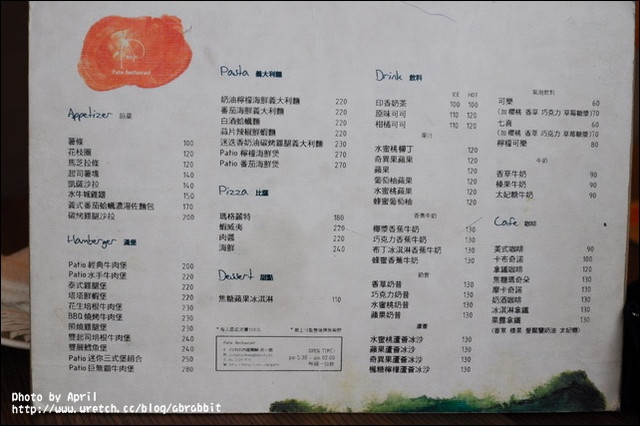 Patio Restaurant
Appetizer 前菜
薯條 100
花枝圈 120
馬芝拉條 120
起司薯塊 140
凱薩沙拉 140
水牛城雞翅 150
義式番茄蛤蠣濃湯佐麵包 170
碳烤雞腿沙拉 200
Hamberger 漢堡
Patio 經典牛肉堡 200
Patio 水手牛肉堡 220
泰式雞腿堡 220
塔塔鮮蝦堡 220
花生培根牛肉堡 230
BBQ 燒烤牛肉堡 230
照燒雞腿堡 230
雙起司培根牛肉堡 230
雙層鱈魚堡 230
Patio 迷你三式堡組合 250
Patio 巨無霸牛肉堡 280
Pasta 義大利麵
奶油檸檬海鮮義大利麵 220
番茄海鮮義大利麵 220
白酒蛤蠣麵 220
蒜片辣椒鮮蝦麵 220
迷迭香奶油碳烤雞腿義大利麵 230
Patio 檸檬海鮮煲 270
Patio 番茄海鮮煲 270
Pizza 比薩
瑪格麗特 180
蝦威夷 220
肉醬 220
海鮮 240
Dessert 甜點
焦糖蘋果冰淇淋 110
Patio Restaurant
OPEN TIME:
Drink 飲料
ICE HOT
印香奶茶 100 100
原味可可 110 120
柑橘可可 110 120
果汁
水蜜桃柳丁 120
奇異果蘋果 120
蘋果 120
葡萄柚蘋果 120
水蜜桃蘋果 120
蜂蜜葡萄柚 120
香蕉牛奶
椰漿香蕉牛奶 130
巧克力香蕉牛奶 130
布丁冰淇淋香蕉牛奶 130
蜂蜜香蕉牛奶 130
奶昔
香草奶昔 130
巧克力奶昔 130
水蜜桃奶昔 130
蘋果奶昔 130
蘆薈
水蜜桃蘆薈冰沙 130
蘋果蘆薈冰沙 130
奇異果蘆薈冰沙 130
楓糖檸檬蘆薈冰沙 130
氣泡飲料
可樂 60
(加 櫻桃 香草 巧克力 草莓糖漿)70
七喜 60
(加 櫻桃 香草 巧克力 草莓糖漿)70
檸檬可樂 80
牛奶
香草牛奶 90
榛果牛奶 90
太妃糖牛奶 90
Cafe 咖啡
美式咖啡 90
卡布奇諾 100
拿鐵咖啡 120
焦糖瑪奇朵 130
摩卡奇諾 130
奶酒咖啡 130
冰淇淋拿鐵 130
果露拿鐵 130
Photo by April
http://www.wretch.cc/blog/abrabbit